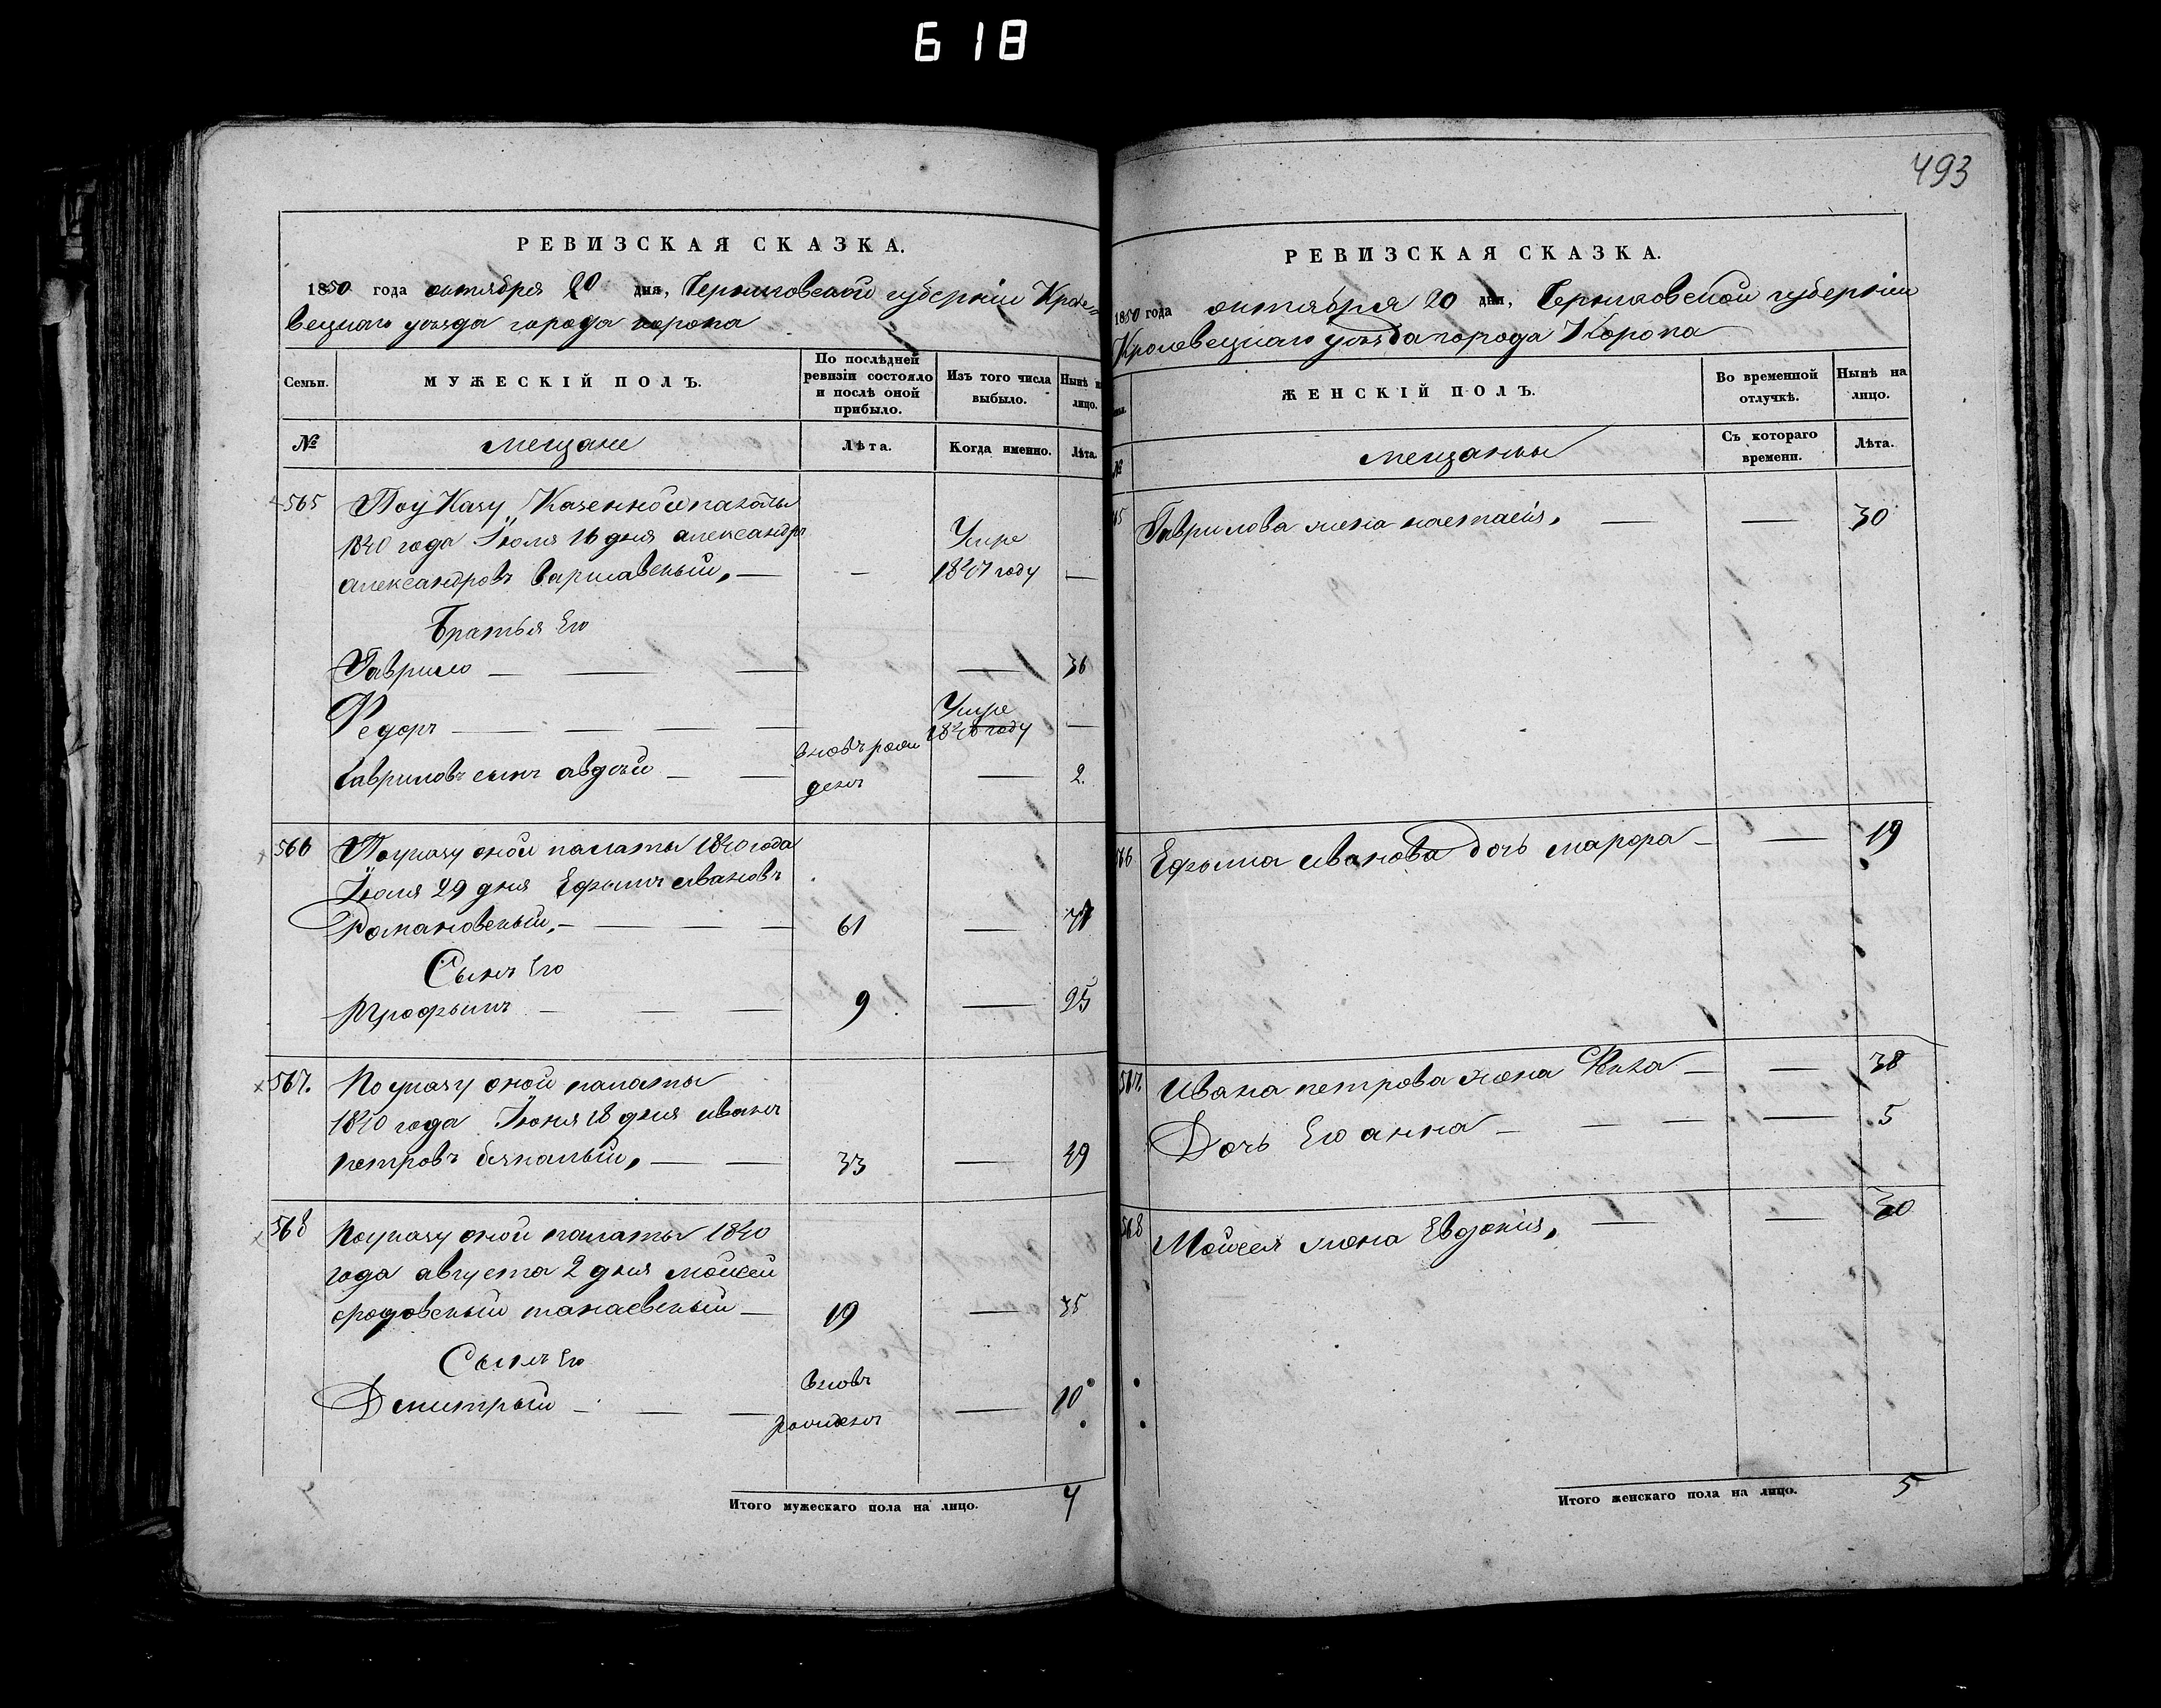 618
493
РЕВИЗСКАЯ СКАЗКА.
1850 года октября 20 дня, Черниговской губернiи Кроле-
вецкаго уѣзда города коропа
Семьи. МУЖЕСКIЙ ПОЛЪ. По послѣдней ревизiи состояло и послѣ оной прибыло. Изъ того числа выбыло. Нынѣ на лицо.
№ мещане Лѣта. Когда именно. Лѣта.
565 По уКазу Казенной палаты
1840 года Iюля 16 дня александръ Умре
александровъ варшавскый, — — 1847 году —
Братья Его
Гаврило — — — — 36
Федоръ — — — — Умре 1848 году —
Гавриловъ сынъ авдѣй — — вновь рож денъ — 2.
566 По указу оной палаты 1840 года
Iюля 29 дня Ефымъ ивановъ
Романовскый, — — — — 61 — 77
Сынъ Его
Трофымъ — — — 9 — 25
567. По указу оной палаты
1840 года Iюня 28 дня иванъ
петровъ , — — 33 — 49
568 По указу оной палаты 1840
года августа 2 дня мойсей
танаевскый — 19 — 35
Сынъ Его
Дмитрый — — — вновь рожденъ — 10
Итого мужескаго пола на лицо. 7
РЕВИЗСКАЯ СКАЗКА.
1850 года октября 20 дня, Черниговской губернiи
Кролевецкаго уѣзда города Коропа
ЖЕНСКIЙ ПОЛЪ. Во временной отлучкѣ. Нынѣ на лицо.
№ мещанкы Съ котораго времени. Лѣта.
Гаврилова жена настасiя, — — 30
Ефыма иванова дочь марфа — — 19
567. Ивана петрова жена — — 38
Дочь Его анна — — — — 5
568 Мойсея жена Евдокiя, — — 30
Итого женскаго пола на лицо. 5